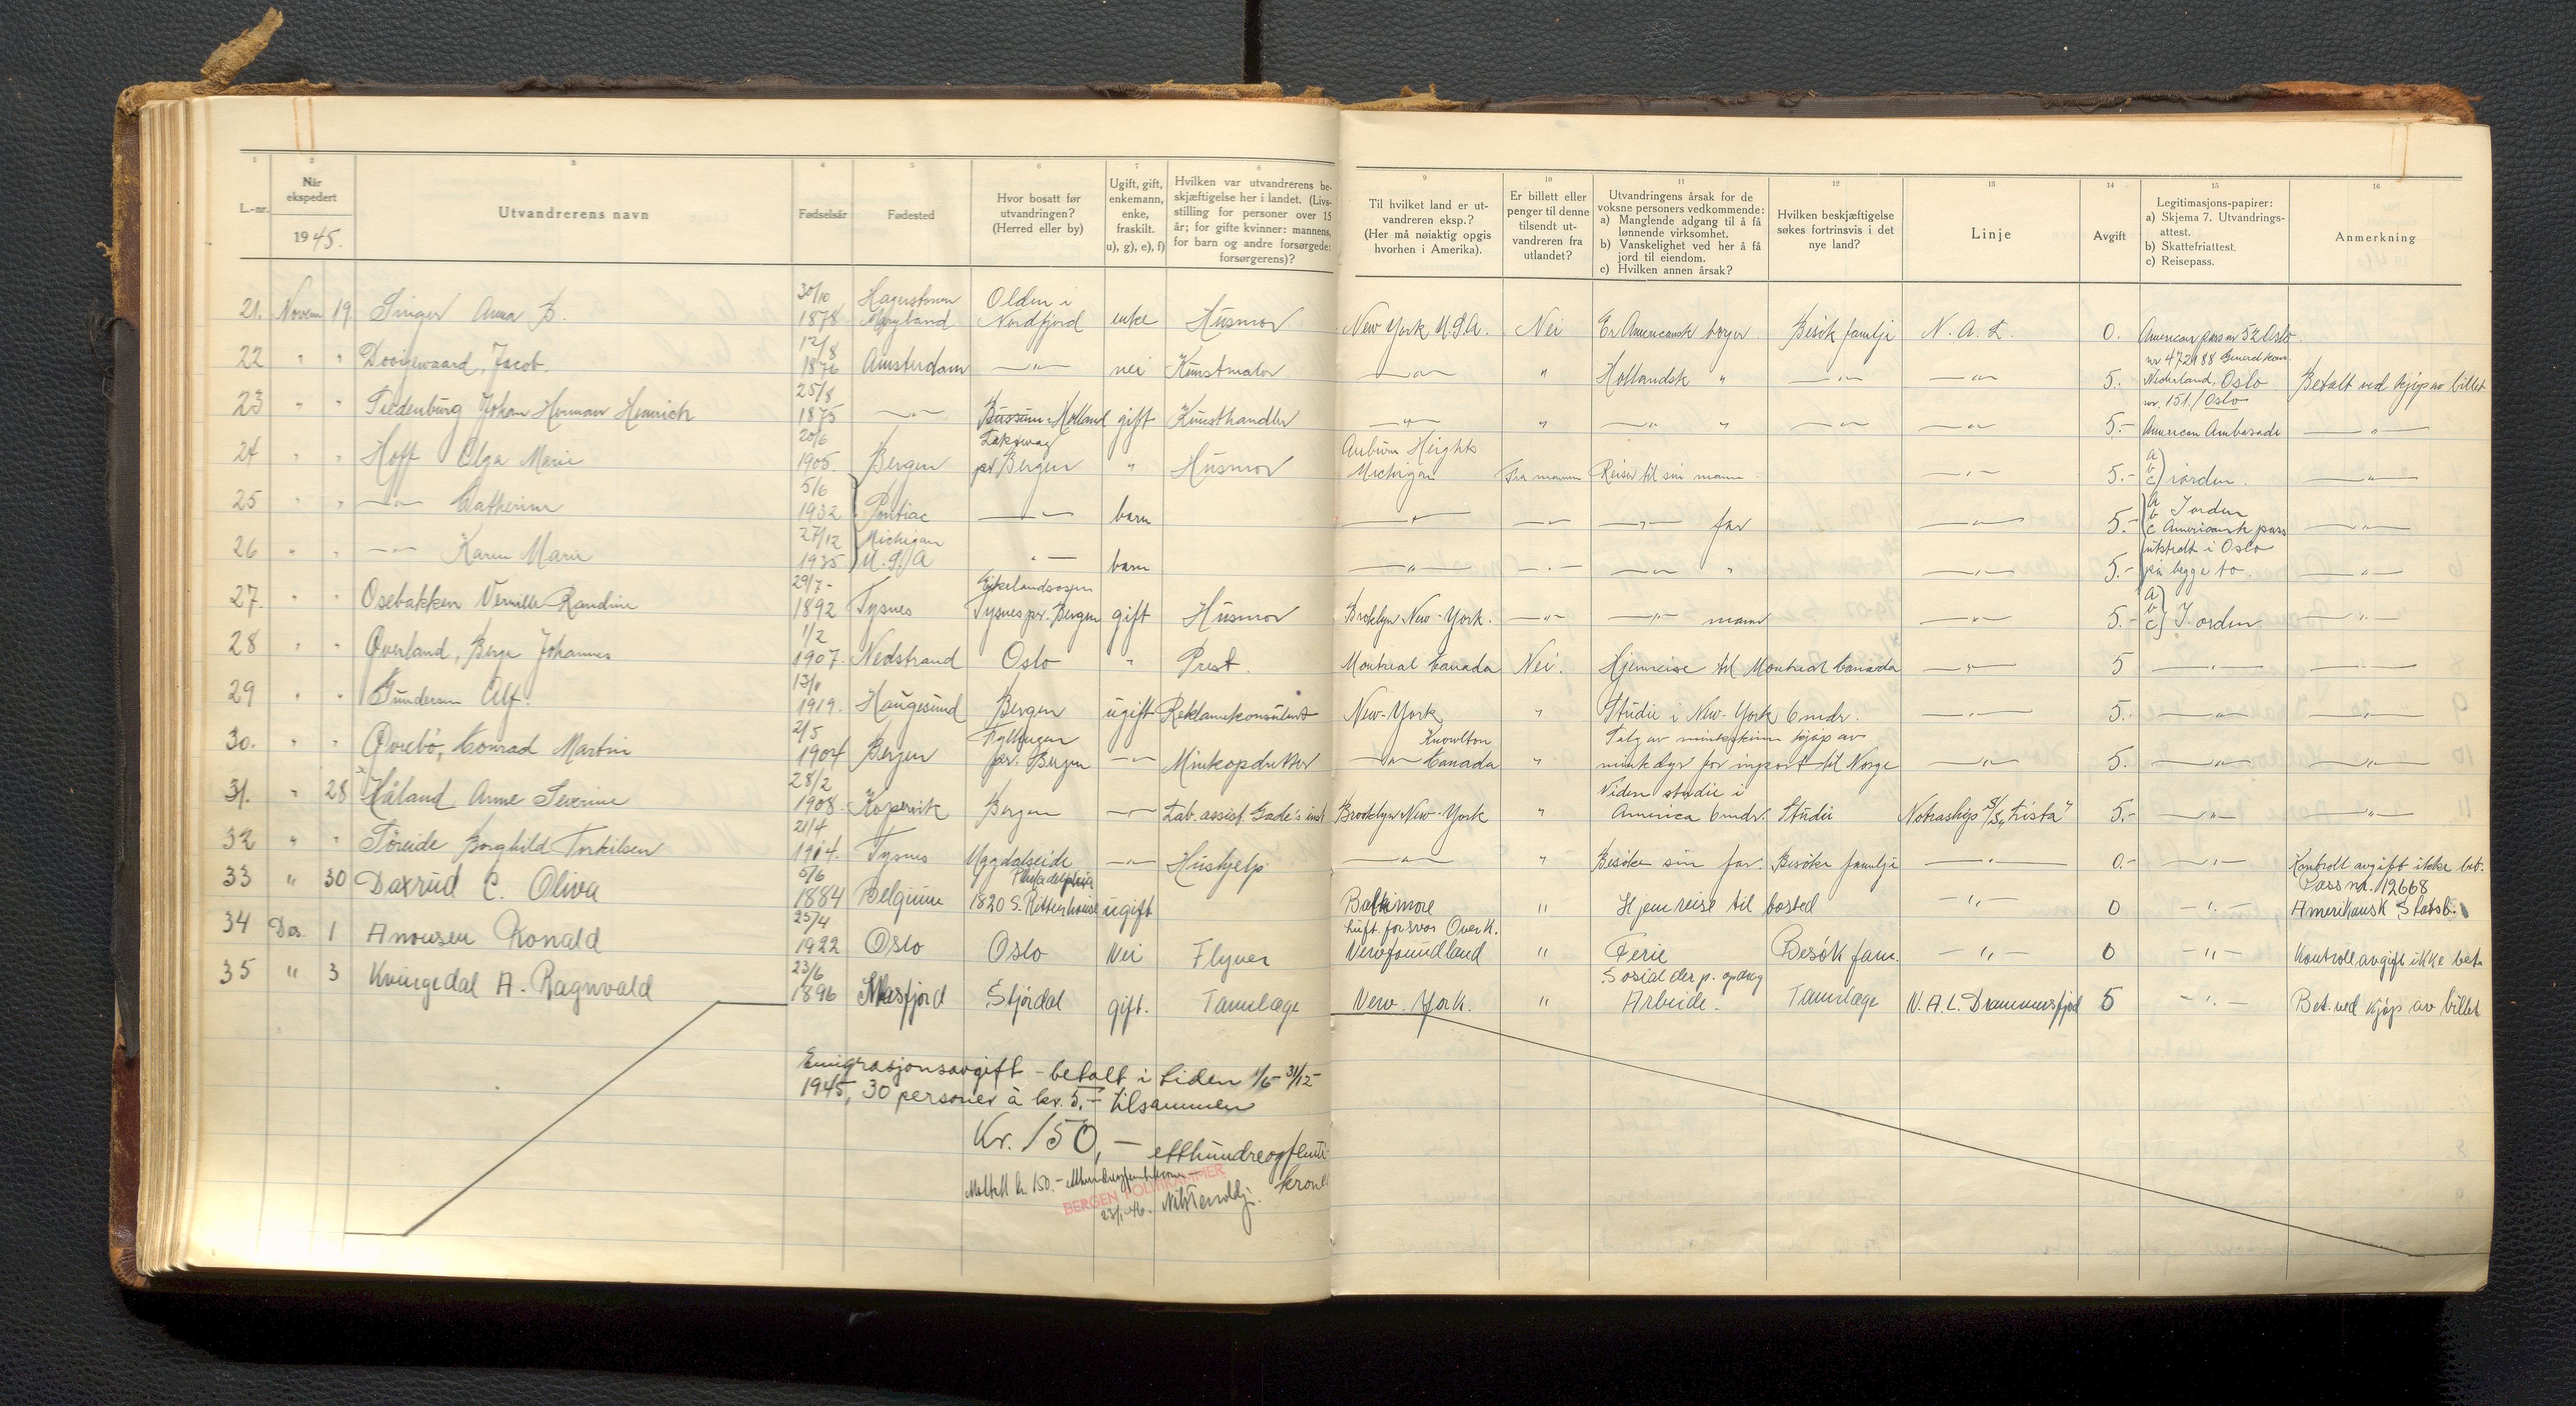 1 2 3 4 5 6 7 8 9 10 11 12 13 14 15 16
L.-nr.
Når
ekspedert
1945.
Utvandrerens navn
Fødselsår
Fødested
Hvor bosatt før
utvandringen?
(Herred eller by)
Ugift, gift,
enkemann,
enke,
fraskilt.
u), g), e), f)
Hvilken var utvandrerens be-
skjæftigelse her i landet. (Livs-
stilling for personer over 15
år; for gifte kvinner: mannens,
for barn og andre forsørgede:
forsørgerens)?
Til hvilket land er ut-
vandreren eksp.?
(Her må nøiaktig opgis
hvorhen i Amerika).
Er billett eller
penger til denne
tilsendt ut-
vandreren fra
utlandet?
Utvandringens årsak for de
voksne personers vedkommende:
a) Manglende adgang til å få
lønnende virksomhet.
b) Vanskelighet ved her å få
jord til eiendom.
c) Hvilken annen årsak?
Hvilken beskjæftigelse
søkes fortrinsvis i det
nye land?
Linje
Avgift
Legitimasjons-papirer:
a) Skjema 7. Utvandrings-
attest.
b) Skattefriattest.
c) Reisepass.
Anmerkning
21. Novem 19. Singer Anna B. 30/10 1878 Hagerstown Maryland Olden i Nordfjord enke Husmor New York U.S.A. Nei Er Amerikansk borger Besøk familje N. A. L. 0. American pass nr 52 Oslo.
22 " " Dooijewaard, Jacob. 12/8 1876 Amsterdam —"— nei Kunstmaler —"— " Hollandsk " —"— —"— 5.- nr 472188 General kons. Nederland, Oslo Betalt ved kjøp av billet
23 " " Tiedenburg Johan Herman Heinrich 25/8 1875 —"— Bussum Holland gift Kunsthandler —"— " —"— " —"— —"— 5.- nr. 151./Oslo American Ambasade —"—
24 " " Hoff Olga Marie 20/6 1905. Bergen Laksevåg pr. Bergen " Husmor Auburn Heights Michigan Fra mannen Reiser til sin mann. —"— 5.- a b c) iorden. —"—
25 " " —"— Catherine 5/6 1932 Pontiac —"— barn —"— —"— —"— far —"— 5.- a b Iorden c Amerikansk pass —"—
26 " " —"— Karen Marie 27/12 1935 Michigan U.S.A "— barn —"— —"— —"— " —"— 5.- utstedt i Oslo på begge to. —"—
27. " " Osebakken Randine 29/7- 1892 Tysnes Eikelandsosen Tysnes pr. Bergen gift Husmor Broklyn New-York. —"— —"— mann —"— 5.- a) b c) I orden —"—
28 " " Øverland, Berge Johannes 1/2 1907. Nedstrand Oslo " Prest. Montreal Canada Nei. Hjemreise til Montreal Canada —"— 5 —"— —"—
29 " " Gundersen Alf. 1919. Haugesund Bergen ugift Reklamekonsulent New-York " Studie i New-York 6 mdr. —"— 5.- —"— —"—
30. " " Øvrebø, Conrad Martin 2/5 1904 Bergen Fyllingen pr. Bergen —"— Minkopdretter Knowlton —"— Canada " Salg av minkskinn kjøp av minkdyr for inport til Norge —"— 5. —"— —"—
31. " 28 Håland Anne Severine 28/2 1908. Kopervik Bergen —"— Lab. assist. Gade's inst Brooklyn New-York " Viden studie i America 6 mdr. Studie Notraship S/S „Trista" 5.- —"— —"—
32 " " Toreide Borghild Torkilsen 21/4 1914. Tysnes Uggdalseide —"— Hushjelp —"— " Besøke sin far. Besøke familje —"— 0.- —"— Kontroll avgift ikke bet.
33 " 30 Daxrud C. Oliva 5/6 1884 Belgium Philadelphia 1820 S. Rittenhouse ugift Baltimore " Hjemreise til bosted —"— 0 —"— Pass nr. 12668 Amerikansk Statsb.
34 Des. 1 Ronald 25/4 1922 Oslo Oslo Nei Flyver Luft. forsvar Overk. Newfoundland " Ferie Besøk fam. —"— 0 —"— Kontroll.avgift ikke bet.
35 " 3 Kvingedal A. Ragnvald 23/6 1896 Masfjord Stjørdal gift. Tannlæge New-York. " Sosial der p. opdrag Arbeide. Tannlæge N. A. L. Drammensfjord 5 —"— Bet. ved kjøp av billet
Emigrasjonsavgift - betalt i tiden 1/6- 31/12-
1945, 30 personer à kr. 5,- tilsammen
Kr. 150,- etthundreogfemti
kroner
Mottatt kr. 150.-
BERGEN POLITIKAMMER
23/1-46.